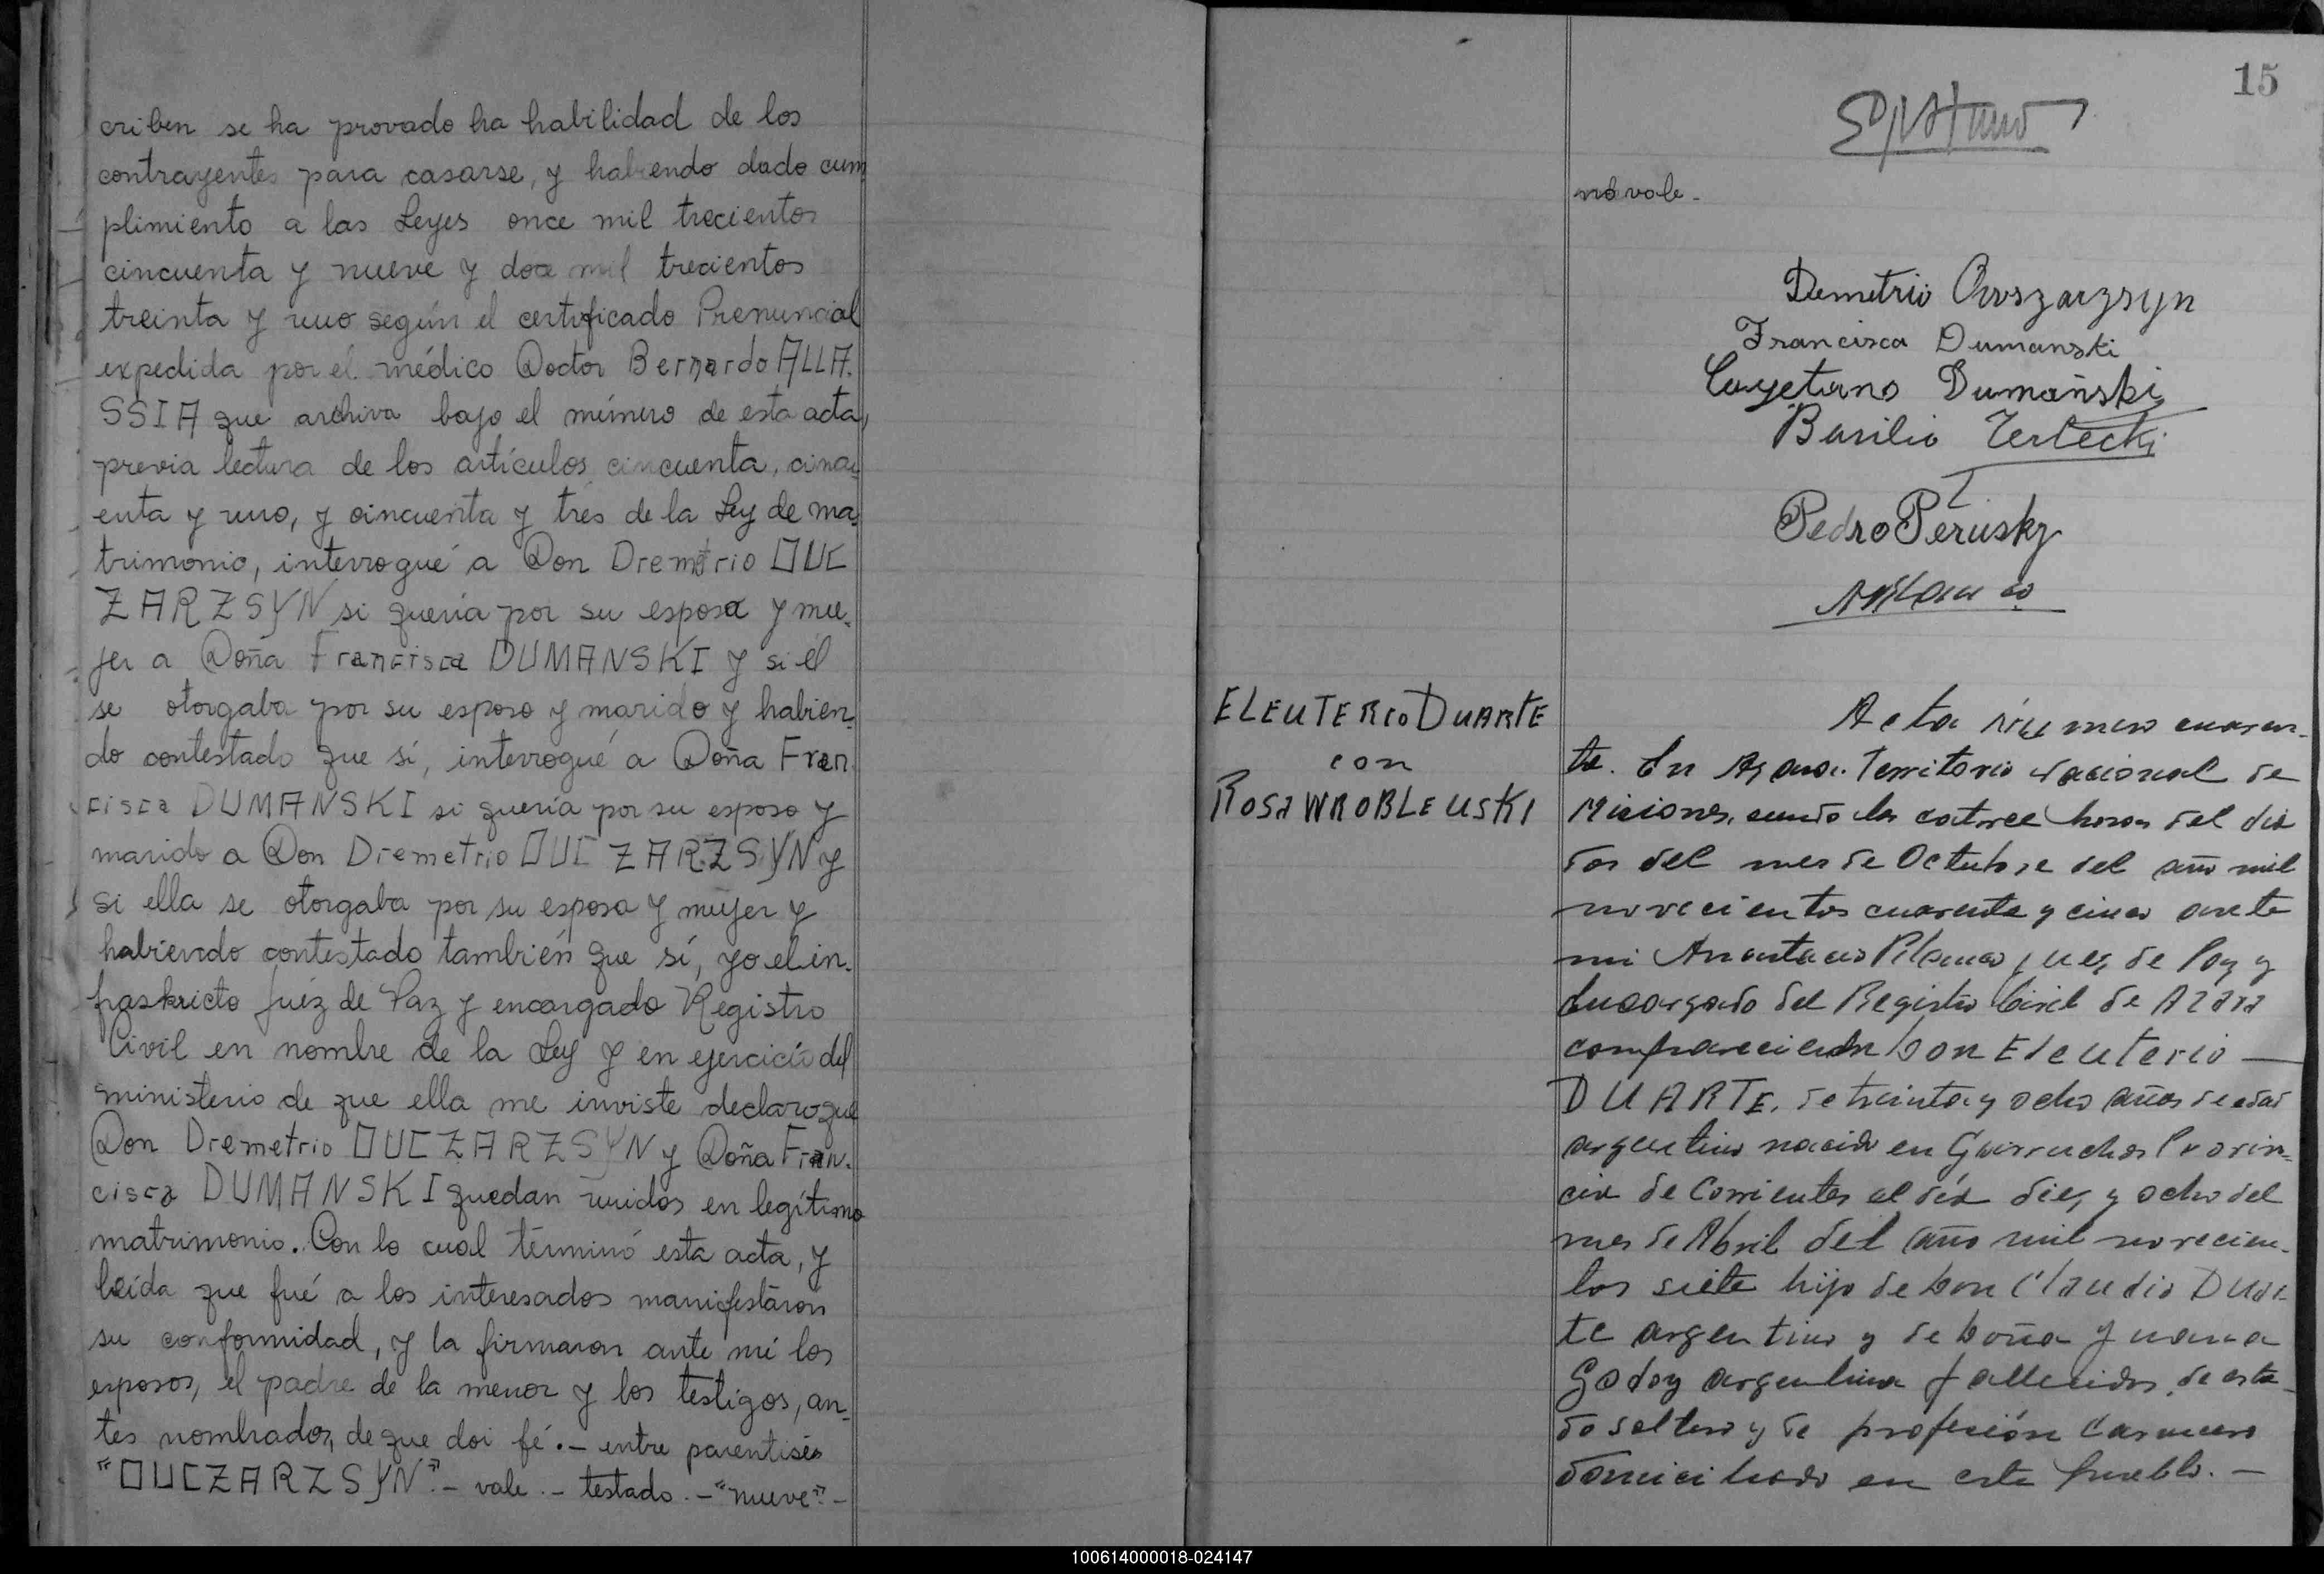 criben se ha provado ha habilidad de los
contrayentes para casarse, y habiendo dado cum
plimiento a las Leyes once mil trecientos
cincuenta y nueve y doce mil trecientos
treinta y uno según el certificado Prenuncial
expedida por él médico Doctor Bernardo ALLA.
SSIA que archiva bajo el número de esta acta,
previa lectura de los artículos cincuenta, cincu
enta y uno, y cincuenta y tres de la Ley de ma.
trimonio, interrogué a Don Dremetrio OUC
ZARZSYN si quería por su esposa y mu.
jer a Doña Francisca DUMANSKI y si él
se otorgaba por su esposo y marido y habien.
do contestado que sí, interrogué a Doña Fran.
cisca DUMANSKI si quería por su esposo y
marido a Don Dremetrio OUCZARZSYN y
si ella se otorgaba por su esposa y mujer y
habiendo contestado también que sí, yo el in.
fraskricto Juéz de Paz y encargado Registro
Civil en nombre de la Ley y en ejercicio del
ministerio de que ella me inviste declaro que
Don Dremetrio OUCZARZSYN y Doña Fran.
cisca DUMANSKI quedan unidos en legítimo
matrimonio. Con lo cual términó esta acta, y
leída que fué a los interesados manifestáron
su conformidad, y la firmaron ante mí los
esposos, el padre de la menor y los testigos, an.
tes nombrados, de que doi fé.- entre parentisis
"OUCZARZSYN".- vale.- testado.- "nueve".-
15
nó vale.-
Demetrio
Francisca Dumanski
Cayetano Dumański
Basilio Terlecki
Pedro Perusky
ELEUTERIO DUARTE
con
ROSA WROBLEUSKI
Acta número cuaren-
ta. En Azara. Territorio Nacional de
Misiones, siendo las catorce horas del dia
dos del mes de Octubre del año mil
novecientos cuarenta y cinco ante
mi Anastacio juez de Paz y
Encargado del Registro Civil de Azara
comparecieron Don Eleuterio —
DUARTE, de treinta y ocho años de edad
argentino nacido en Garruchos Provin-
cia de Corrientes el día diez y ocho del
mes de Abril del año mil novecien-
tos siete hijo de Don Claudio Duar-
te argentino y de Doña Juana
Godoy argentina fallecidos, de esta-
do soltero y de profesión Carnicero
domiciliado en este pueblo. —
100614000018-024147